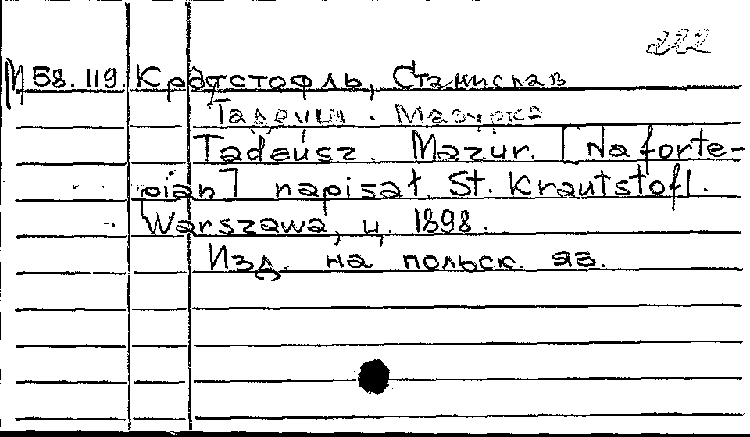 222
М 58.119. Краутстофль, Станислав
Тадеуш. Мазурка
Tadeusz. Mazur. [Na forte-
pian] napisał St. Krautstofl.
Warszawa, ц. 1898.
Изд. на польск. яз.